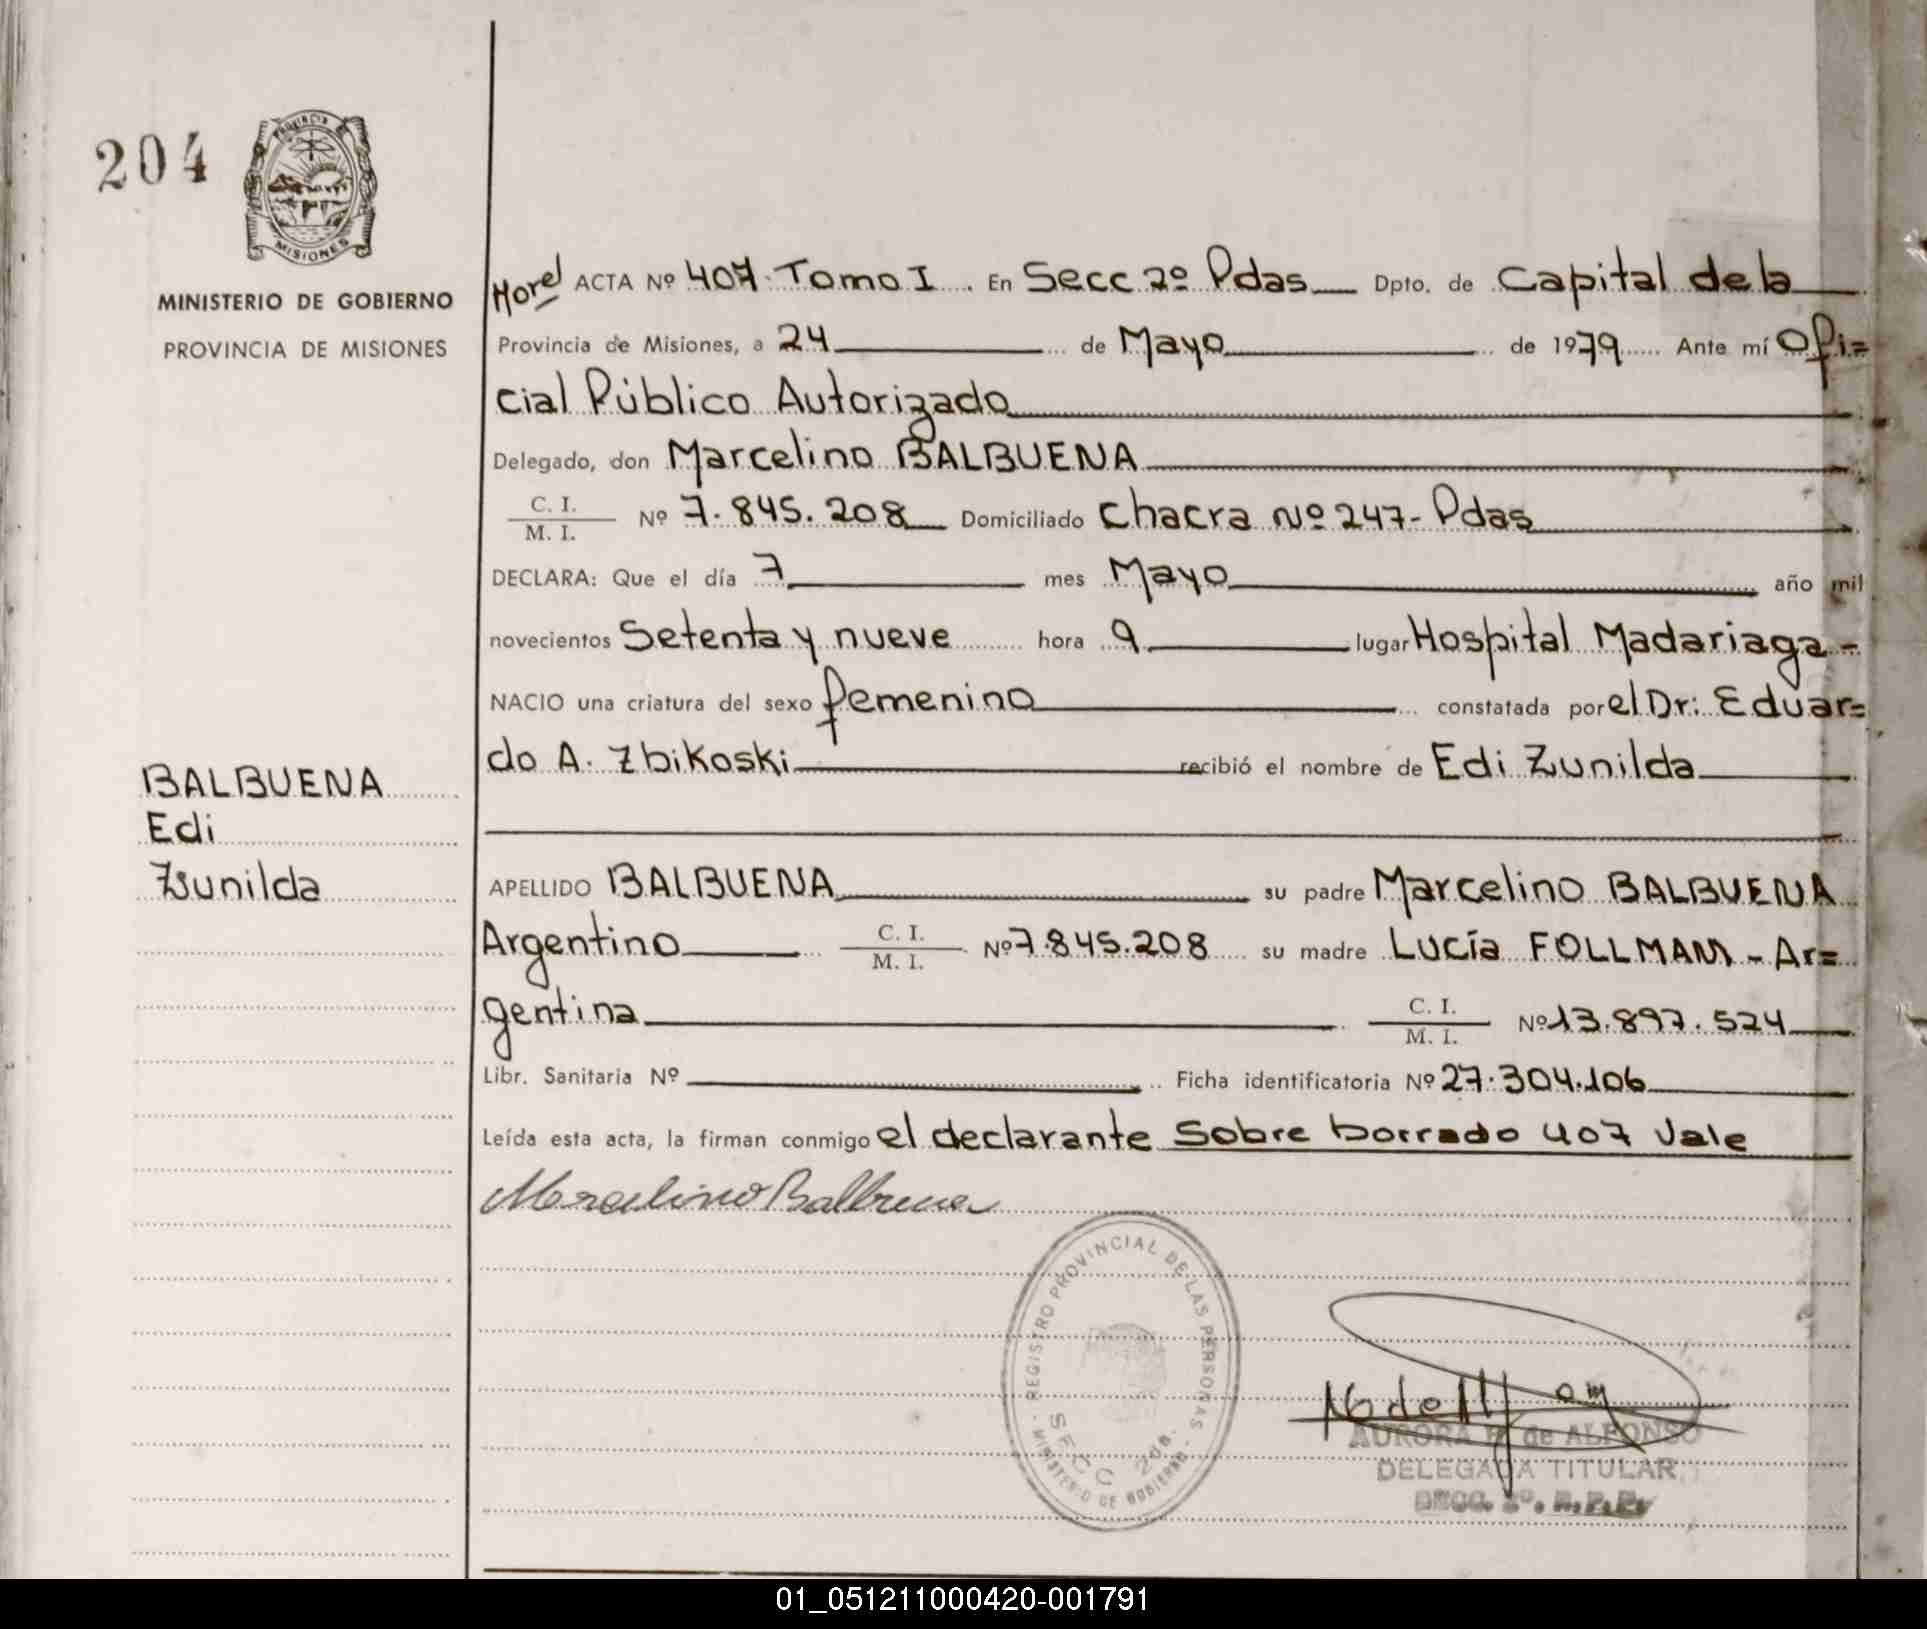 204
PROVINCIA DE
MISIONES
MINISTERIO DE GOBIERNO
PROVINCIA DE MISIONES
Morel ACTA Nº 407 Tomo I. En Secc 2º Pdas Dpto. de Capital de la
Provincia de Misiones, a 24 de Mayo de 1979 Ante mí Ofi=
cial Público Autorizado
Delegado, don Marcelino BALBUENA
C. I.
M. I. Nº 7.845.208 Domiciliado Chacra Nº 247- Pdas
DECLARA: Que el día 7 mes Mayo año mil
novecientos Setenta y nueve hora 9 lugar Hospital Madariaga -
NACIO una criatura del sexo femenino constatada por el Dr: Eduar=
do A. Zbikoski recibió el nombre de Edi Zunilda
BALBUENA
Edi
Zunilda
APELLIDO BALBUENA su padre Marcelino BALBUENA
Argentino C. I.
M. I. Nº 7.845.208 su madre Lucía FOLLMAM - Ar=
gentina C. I.
M. I. Nº 13.897.524
Libr. Sanitaria Nº Ficha identificatoria Nº 27.304.106
Leída esta acta, la firman conmigo el declarante Sobre borrado 407 Vale
Marcelino Balbuena
REGISTRO PROVINCIAL DE LAS PERSONAS
MINISTERIO DE GOBIERNO
SECC 2da.
AURORA de ALFONSO
DELEGADA TITULAR
SECC. 2º. R.P.P.
01_051211000420-001791